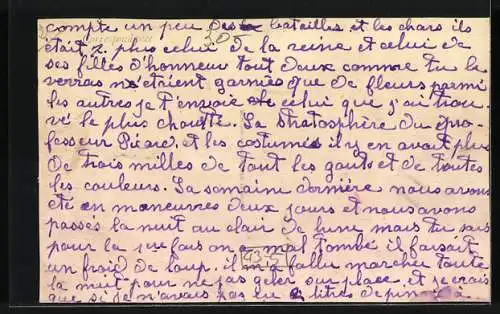 compte un peu des batailles et les chars ils
était 2 plus celui de la reine et celui de
ses filles d'honneur tout deux comme tu le
verras n'étrient garnies que de fleurs parmi
les autres je t'envoie celui que j'ai trou-
vé le plus chouette. La Stratosphère du pro-
fesseur Picard, et les costumes il y en avait plus
de trois milles de tout les gouts et de toutes
les couleurs. La semaine dernière nous avons
été en maneuvres deux jours et nous avons
passés la nuit au clair de lune mais tu sais
pour la 1ere fois on a mal tombé il faisait
un froid de loup. il m'a fallu marcher toute
la nuit pour ne pas geler sur place. et je crois
que si je n'avais pas eu 2 litres de pinard
43-5